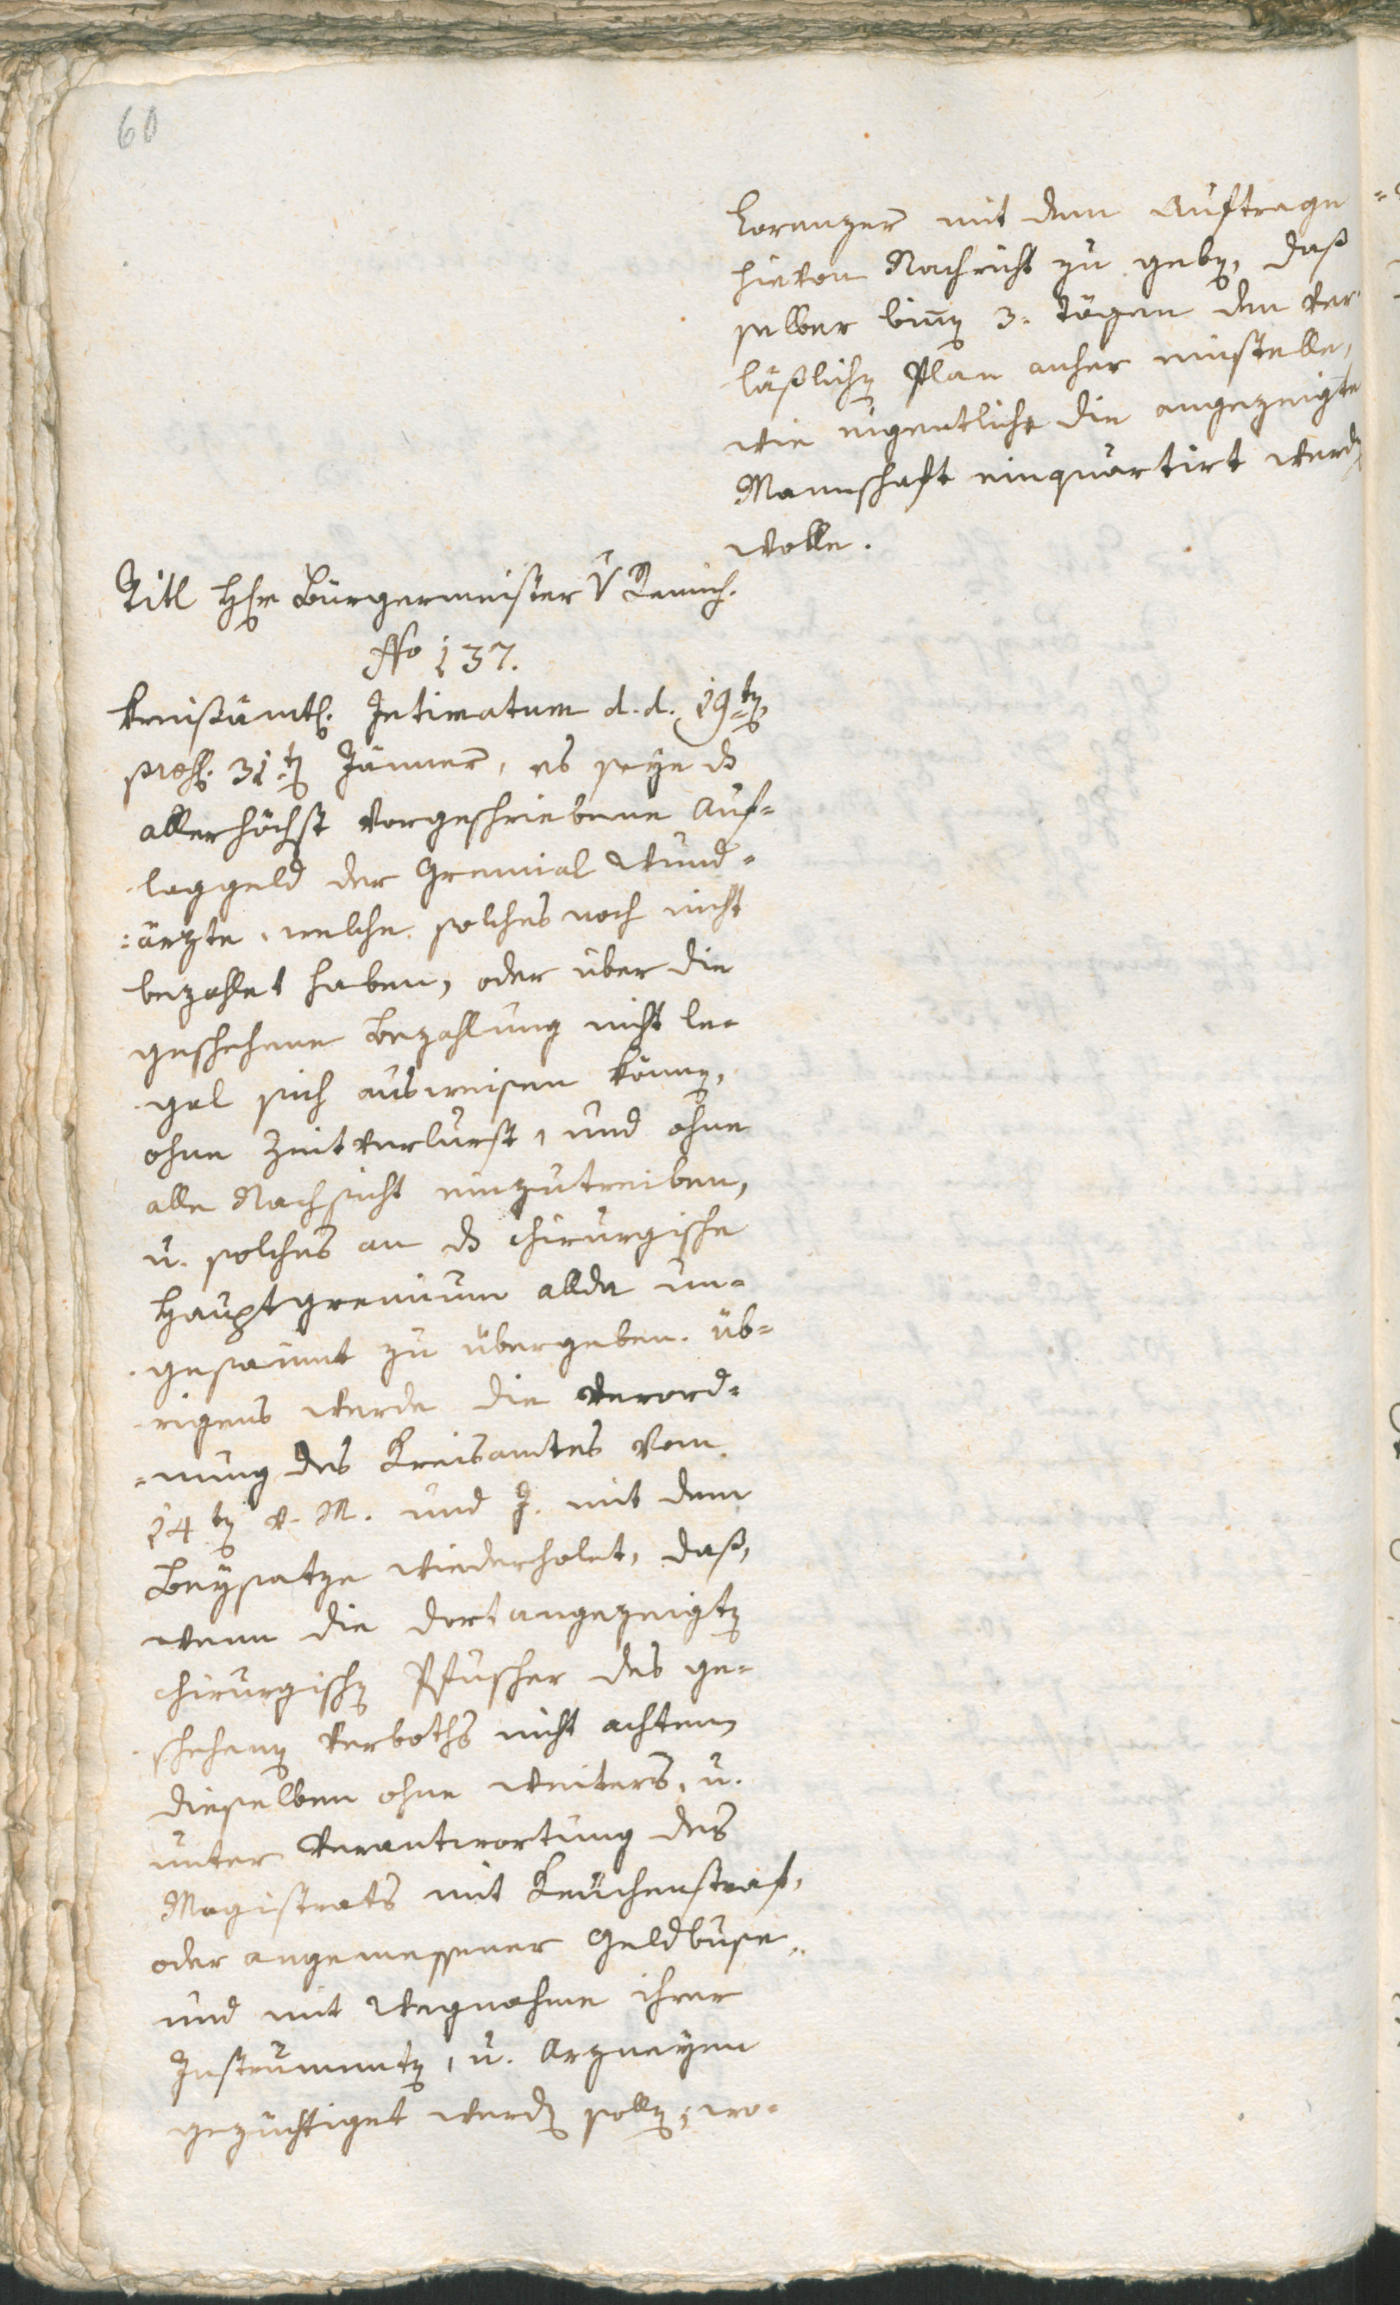 60
Loranzer mit dem Auftrage
hievon Nachricht zu geben, daß
selber binnen 3. Tägen den ver¬
läßlichen Plan anher einstelle,
wie eigentlich die angezeigte
Mannschaft einquartirt werden
wolle.
Titl Hr Bürgermeister V
No 137.
Kreisämtl. Intimatum d. d. 19ten
praes. 31ten Jänner, es seye das
allerhöchst vorgeschriebene Auf=
laggeld der Gremial Wund=
=ärzte, welche solches noch nicht
bezahlet haben, oder über die
geschehene Bezahlung nicht le=
gal sich ausweisen können,
ohne Zeitverlurst, und ohne
alle Nachsicht einzutreiben,
u. solches an das chirurgische
Hauptgremium allda un=
gesaumt zu übergeben. üb=
rigens werde die Verord=
=nung des Kreisamtes vom
14ten v. M. und J. mit dem
Beysatze wiederholet, daß,
wenn die dort angezeigten
chirurgischen Pfuscher des ge=
schehenen Verboths nicht achten,
dieselben ohne weiters, u.
unter Verantwortung des
Magistrats mit Keuchenstraf,
oder angemessener Geldbuse,
und mit Wegnahme ihrer
Instrumenten, u. Arzneyen
gezüchtiget werden sollen; wo=